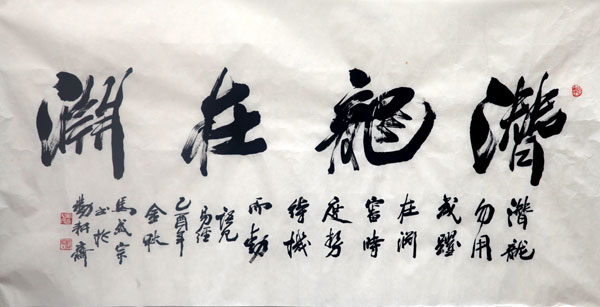 潛龍在淵
潛龍
勿用
或躍
在淵
審時
度勢
待機
而動
語見
易經
乙酉年
金秋
馬成宗
书於
勤耕齋